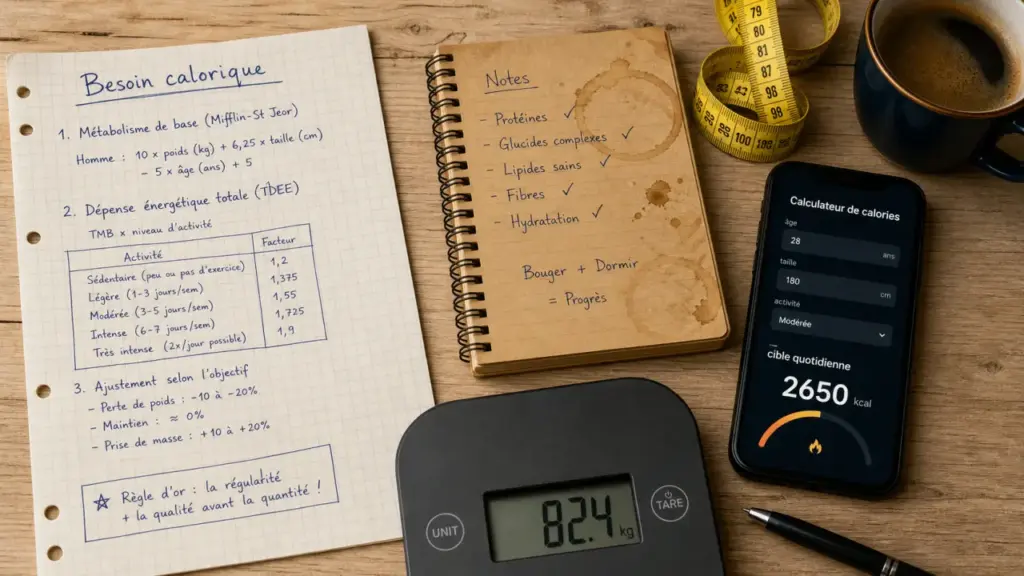 Besoin calorique
1. Métabolisme de base (Mifflin-St Jeor)
Homme : 10 x poids (kg) + 6,25 x taille (cm)
- 5 x âge (ans) + 5
2. Dépense énergétique totale (TDEE)
TMB x niveau d'activité
Activité Facteur
Sédentaire (peu ou pas d'exercice) 1,2
Légère (1-3 jours/sem) 1,375
Modérée (3-5 jours/sem) 1,55
Intense (6-7 jours/sem) 1,725
Très intense (2x/jour possible) 1,9
3. Ajustement selon l'objectif
- Perte de poids : -10 à -20%
- Maintien : ≈ 0%
- Prise de masse : +10 à +20%
☆ Règle d'or : la régularité
+ la qualité avant la quantité !
Notes
- Protéines ✓
- Glucides complexes ✓
- Lipides sains ✓
- Fibres ✓
- Hydratation ✓
Bouger + Dormir
= Progrès
79
80
81
87
97
98
98
100
Calculateur de calories
âge
28 ans
taille
180 cm
activité
Modérée
cible quotidienne
2650 kcal
UNIT
82.4 kg
TARE